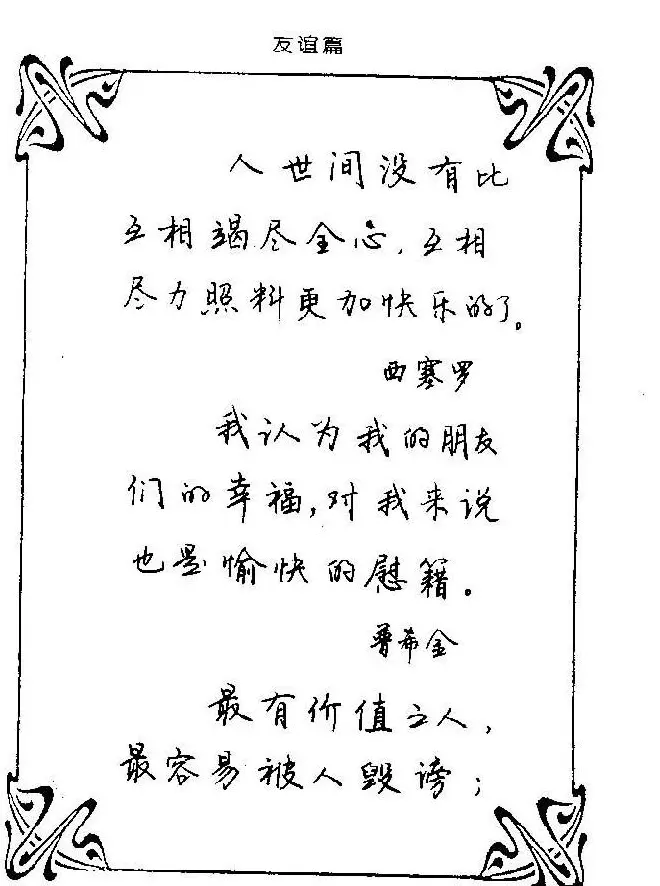 友谊篇
人世间没有比
互相竭尽全心，互相
尽力照料更加快乐的了。
西塞罗
我认为我的朋友
们的幸福，对我来说
也是愉快的慰籍。
普希金
最有价值之人，
最容易被人毁谤；